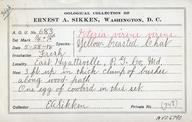 OOLOGICAL COLLECTION OF
ERNEST A. SIKKEN, WASHINGTON, D. C.
A. O. U. No. 683
Icteria virens virens
Set Mark
Species
Yellow-breasted Chat
Date 5-28-16
Incubation Fresh
Locality East Hyattsville, P. G. Co. Md.
3 ft. up in thick clump of bushes
along wood path
One egg of cowbird in this set
Collector E. A. Sikken